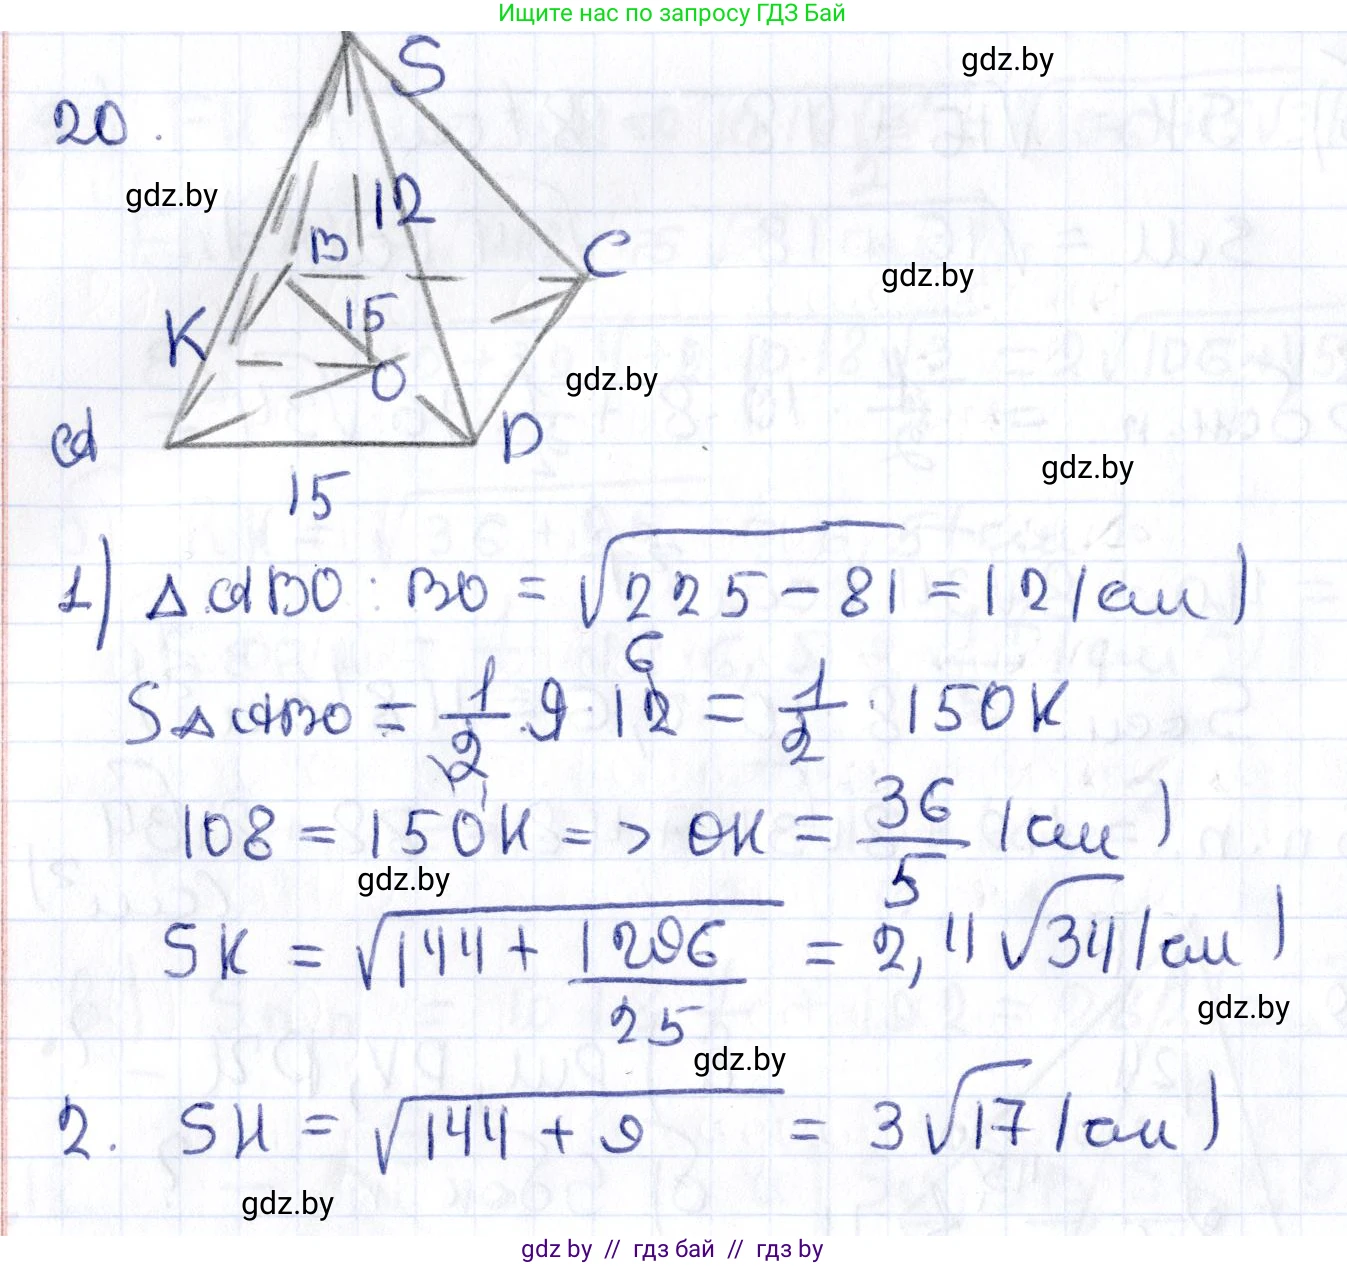 Ищите нас по запросу ГДЗ Бай
gdz.by
20.
S
gdz.by
12
B
C
gdz.by
K
15
O
gdz.by
A
D
gdz.by
15
1) △ABO: BO = √225 − 81 = 12 (см)
S△ABO = 1/2 · 9 · 12 6 = 1/2 · 15OK
108 = 15OK => OK = 36/5 (см)
gdz.by
SK = √144 + 1296/25 = 2,4√34 (см)
gdz.by
gdz.by
2. SH = √144 + 9 = 3√17 (см)
gdz.by
gdz by // гдз бай // гдз by